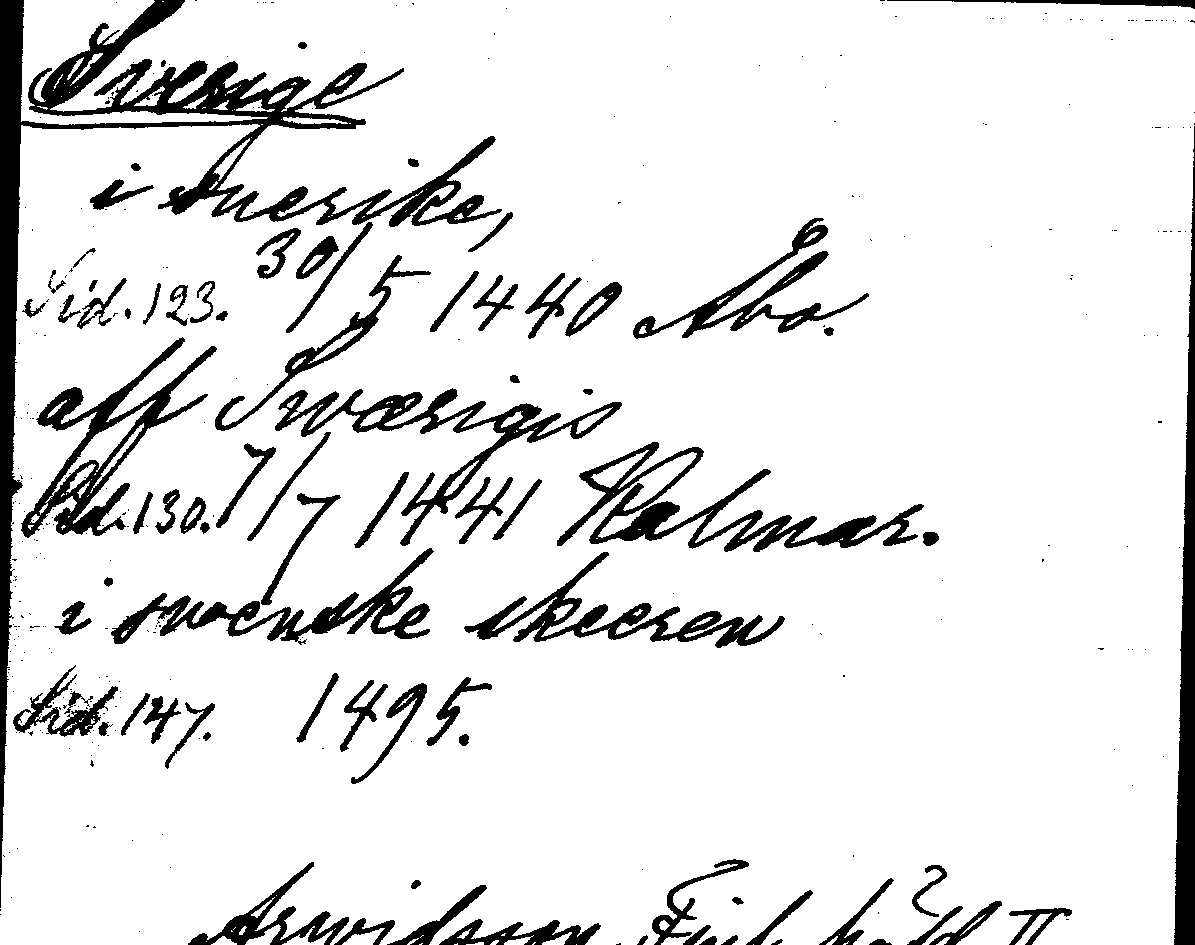 Sverige
i suerike,
Sid. 123. 30/5 1440 Åbo.
aff Swærigis
Sid. 130. 7/7 1441 Kalmar.
i swenske skeeren
Sid. 147. 1495.
Arwidsson, II